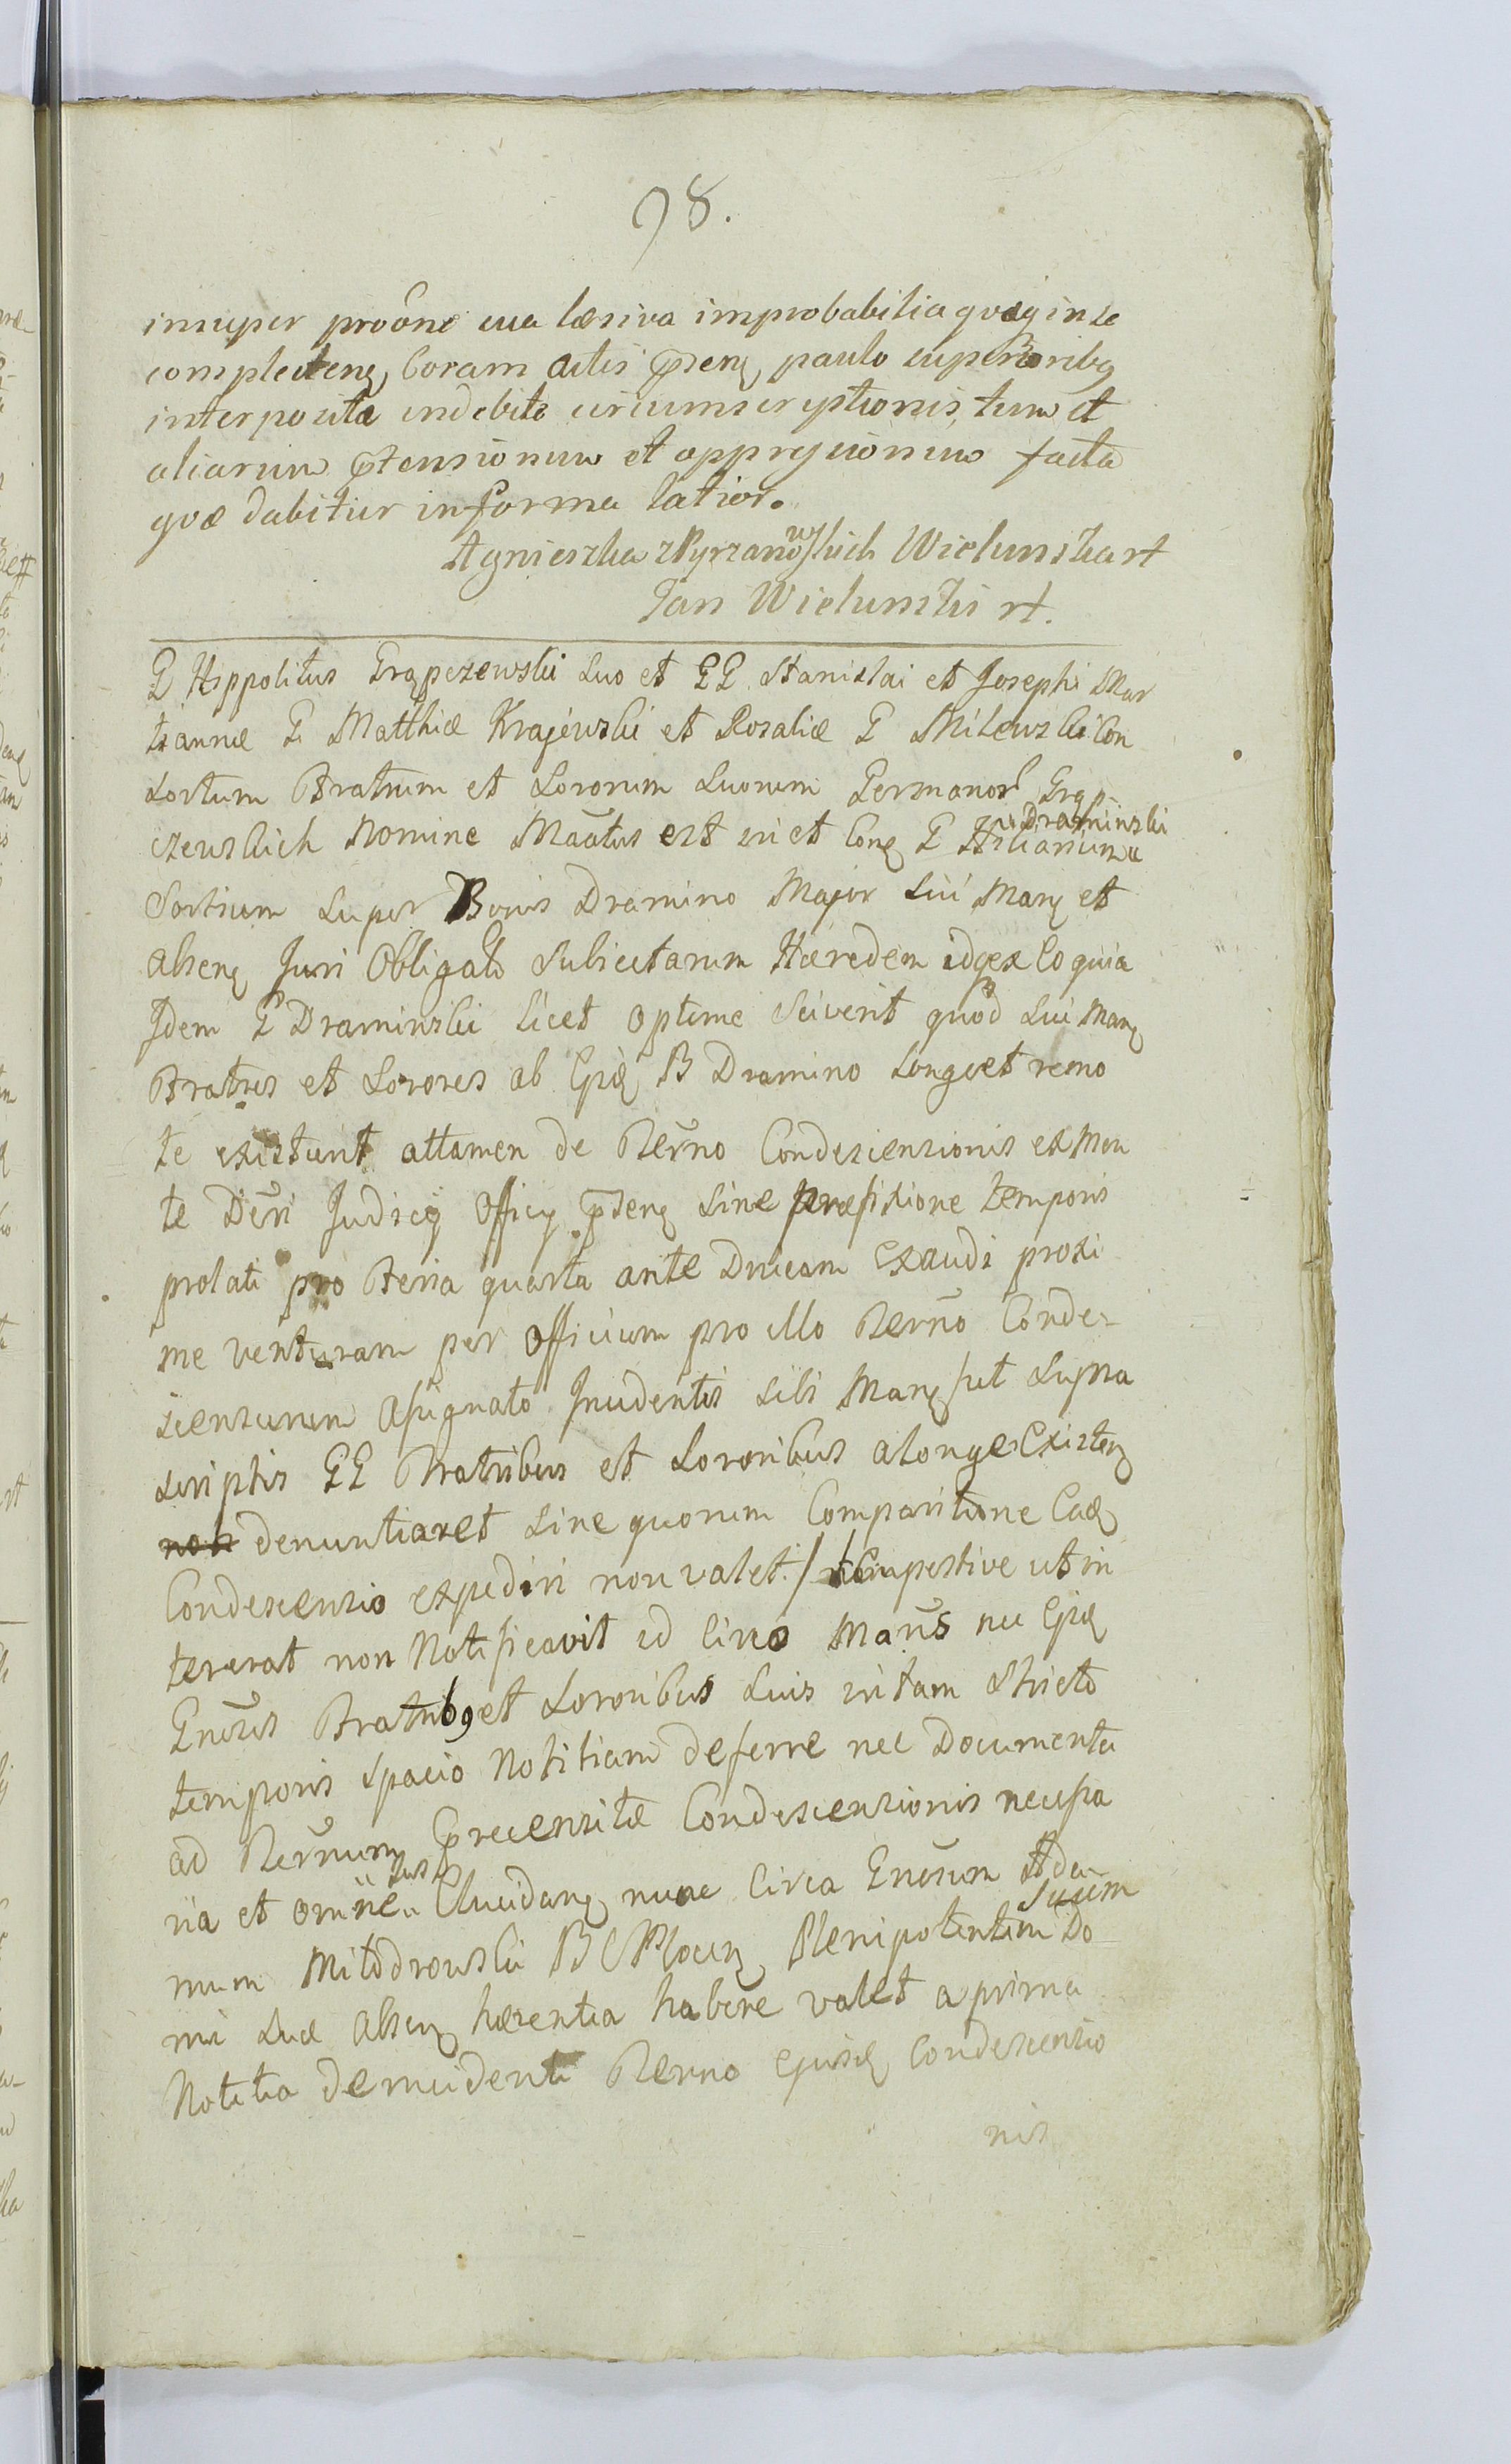 98.
insuper proõne sua læsiva improbabilia quæq in se
complecten, Coram actis pñten, paulo superioribq
interposita indebite circumscriptionis, tum et
aliarum prtensionum et oppressionum facta
quæ dabitur in forma latior.
Agnieszka z Pyrzanowskich Wielunska rt
Jan Wielunski rt.
G Hippolitus Grąpczewski suo et GG Stanislai et Josephi Mar
tiannæ G Matthiæ Krajewski et Rosaliæ G Milewski Con
sortum Fratrum et Sororum suorum Germanor Grąp
czewskich Nomine Mãtus est in et Con G Hilarium
Draminski
Sortium super Bonis Dramino Major sui Man et
absen Juri Obligato Subiectarum Hæredem idq ex eo quia
Idem G Draminski licet optime Sciverit quod sui Man
Fratres et Sorores ab Ejd B Dramino longe et remo
te existunt attamen de Terño Condescensionis ex Men
te Decri Judicij Officij pñten sine præfixione temporis
prolati pro Feria quarta ante Dnicam Exaudi proxi
me venturam per Officium pro illo Terño Conde-
scensurum assignato Incidentis sibi Man / ut supra
scriptis GG Fratribus et Sororibus a longe Existen
non denuntiaret sine quorum Comparitione Ead
Condescensio expediri non valet./ tempestive ut in
tererat non Notificavit id circo Mañs nec Ejd
Gnosis Fratribq et Sororibus suis in tam stricto
temporis spacio Notitiam deferre nec Documenta
ad Terñum præcensitæ Condescensionis necessa
ria et omñe Elucidan nunc Circa Gnosum Ada-
mum Mitodrowski B C Plocen Plenipotentem suum Do
mi suæ absen hærentia habere valet a prima
Notitia de incidenti Terno ejusd Condescensio
nis